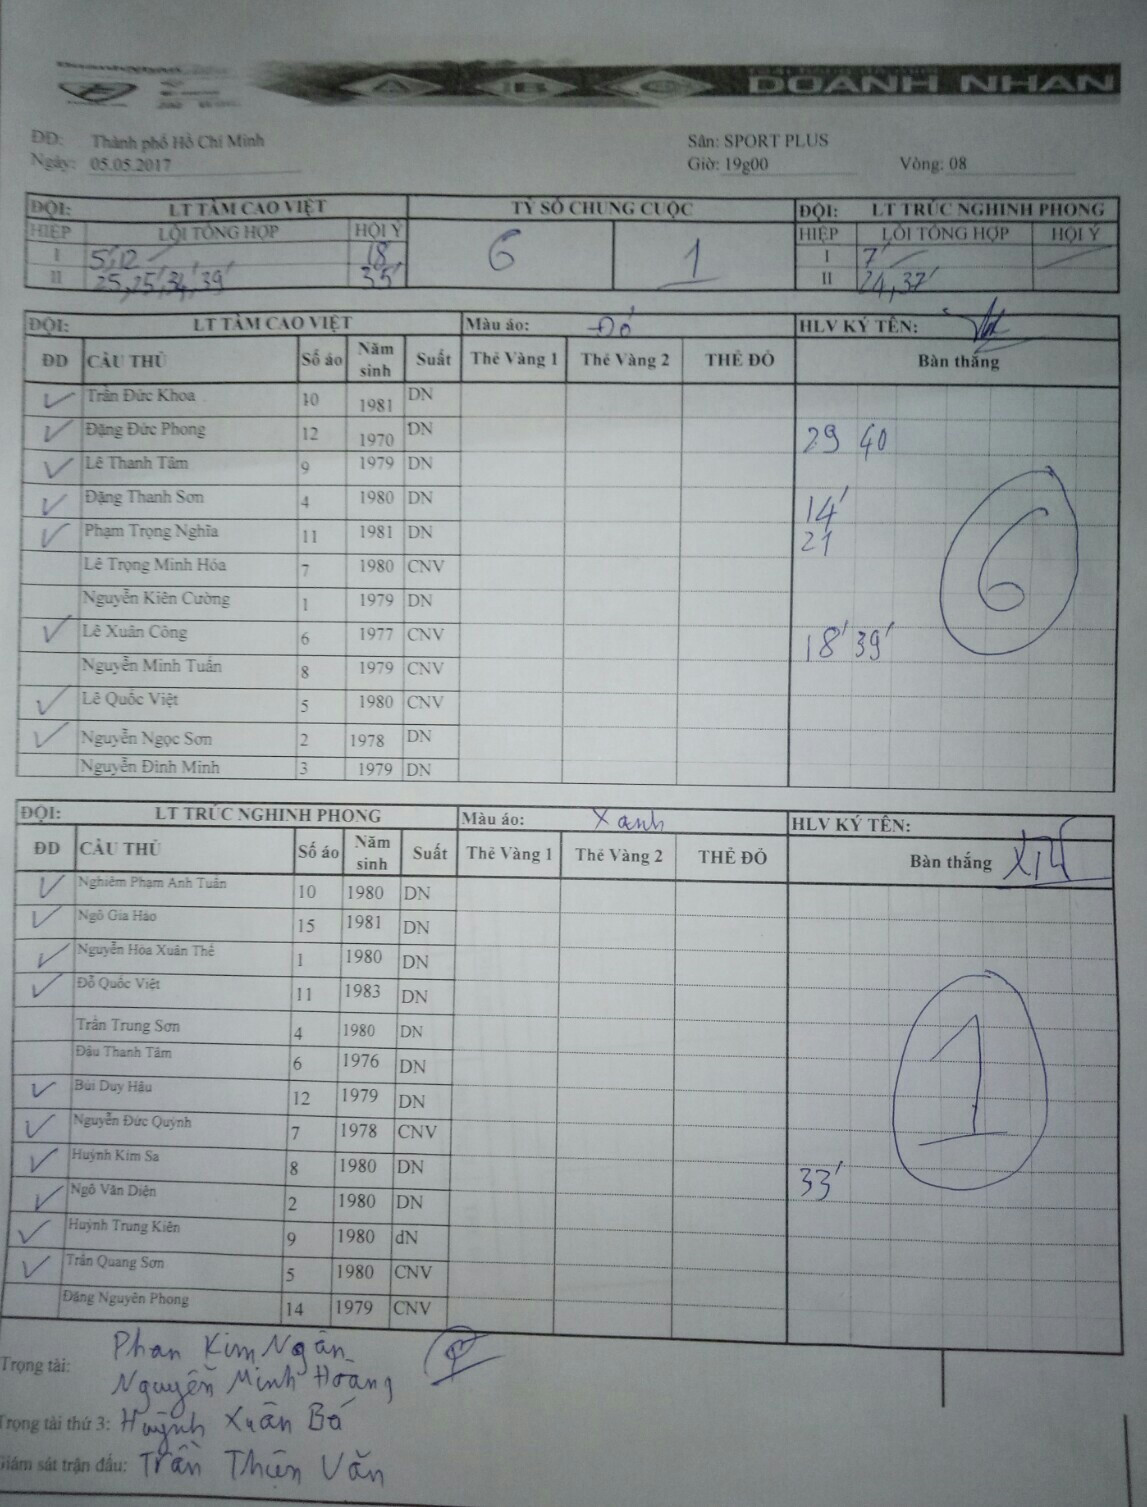 DOANH NHAN
ĐĐ: Thành phố Hồ Chí Minh Sân: SPORT PLUS
Ngày: 05.05.2017 Giờ: 19g00 Vòng: 08
ĐỘI: LT TẦM CAO VIỆT TỶ SỐ CHUNG CUỘC ĐỘI: LT TRÚC NGHINH PHONG
HIỆP LỖI TỔNG HỢP HỘI Ý 6 1 HIỆP LỖI TỔNG HỢP HỘI Ý
I 5,12 18 I 7'
II 25,25',34',39' 35' II 24,37'
ĐỘI: LT TẦM CAO VIỆT Màu áo: Đỏ HLV KÝ TÊN:
ĐD CẦU THỦ Số áo Năm sinh Suất Thẻ Vàng 1 Thẻ Vàng 2 THẺ ĐỎ Bàn thắng
Trần Đức Khoa 10 1981 DN
Đặng Đức Phong 12 1970 DN 29 40
Lê Thanh Tâm 9 1979 DN
Đặng Thanh Sơn 4 1980 DN 14'
Phạm Trọng Nghĩa 11 1981 DN 21
Lê Trọng Minh Hóa 7 1980 CNV
Nguyễn Kiên Cường 1 1979 DN
Lê Xuân Công 6 1977 CNV 18' 39'
Nguyễn Minh Tuấn 8 1979 CNV
Lê Quốc Việt 5 1980 CNV
Nguyễn Ngọc Sơn 2 1978 DN
Nguyễn Đình Minh 3 1979 DN
6
ĐỘI: LT TRÚC NGHINH PHONG Màu áo: Xanh HLV KÝ TÊN:
ĐD CẦU THỦ Số áo Năm sinh Suất Thẻ Vàng 1 Thẻ Vàng 2 THẺ ĐỎ Bàn thắng
Nghiêm Phạm Anh Tuấn 10 1980 DN
Ngô Gia Hào 15 1981 DN
Nguyễn Hòa Xuân Thế 1 1980 DN
Đỗ Quốc Việt 11 1983 DN
Trần Trung Sơn 4 1980 DN
Đậu Thanh Tâm 6 1976 DN
Bùi Duy Hậu 12 1979 DN
Nguyễn Đức Quỳnh 7 1978 CNV
Huỳnh Kim Sa 8 1980 DN 33'
Ngô Văn Diện 2 1980 DN
Huỳnh Trung Kiên 9 1980 dN
Trần Quang Sơn 5 1980 CNV
Đặng Nguyên Phong 14 1979 CNV
1
Trọng tài: Phan Kim Ngân
Nguyễn Minh Hoàng
Trọng tài thứ 3: Huỳnh Xuân Bá
Giám sát trận đấu: Trần Thiên Văn